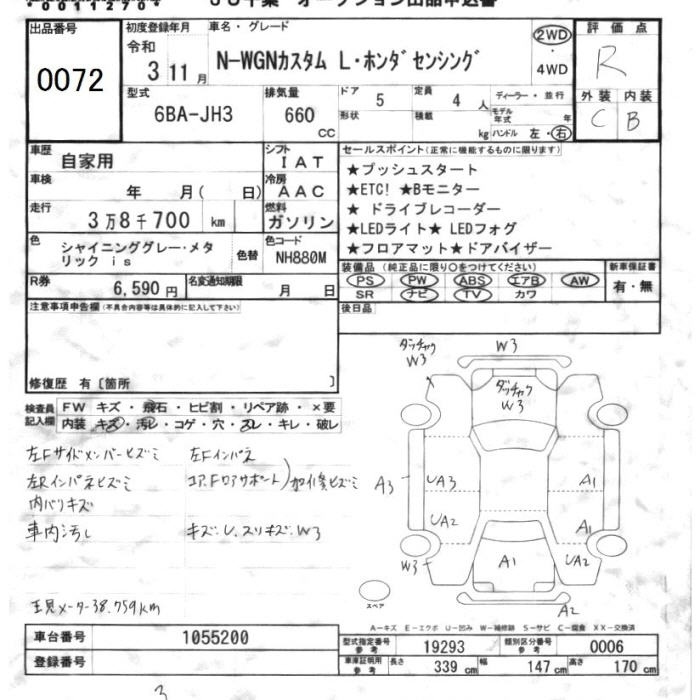 00112704
出品番号 初度登録年月 車名・グレード 評価点
0072
令和
3年11月
N-WGNカスタム L・ホンダセンシング
2WD
4WD
R
外装 内装
C B
型式 排気量 ドア 定員 ディーラー・並行
6BA-JH3 660 CC 5 4人
形状 積載 kg モデル年式 年
ハンドル 左・右
車歴 自家用
シフト IAT
セールスポイント(正常に機能するものに限ります)
車検 年 月( 日)
冷房 AAC
走行 3万8千700 km
燃料 ガソリン
★プッシュスタート
★ETC! ★Bモニター
★ ドライブレコーダー
★LEDライト★ LEDフォグ
★フロアマット★ドアバイザー
色 シャイニンググレー・メタ
リック is
色替
色コード NH880M
装備品(純正品に限り○をつけてください) 新車保証書
PS PW ABS エアB AW
SR ナビ TV カワ
有・無
R券 6,590円
名変通知期限 月 日
後日品
注意事項申告欄(不具合内容等は具体的に記入して下さい)
修復歴 有〔箇所 〕
検査員記入欄
FW キズ・飛石・ヒビ割・リペア跡・×要
内装 キズ・汚レ・コゲ・穴・スレ・キレ・破レ
左Fサイドメンバーヒズミ
左Fインパネ
左Rインパネヒズミ
コア、Fロアサポート)加修ヒズミ
内バリキズ
車内汚レ
キズ、U、スリキズ、W3
現メーター38,759km
ダッチャク
W3
W3
ダッチャク
W3
A3
UA3
A1
UA2
A1
W3
A1
UA2
A2
スペア
A-キズ E-エクボ U-凹み W-補修跡 S-サビ C-腐食 XX-交換済
車台番号 1055200
登録番号
型式指定番号 参考 19293
類別区分番号 参考 0006
車庫証明用 参考 長さ 339 cm 幅 147 cm 高さ 170 cm
3